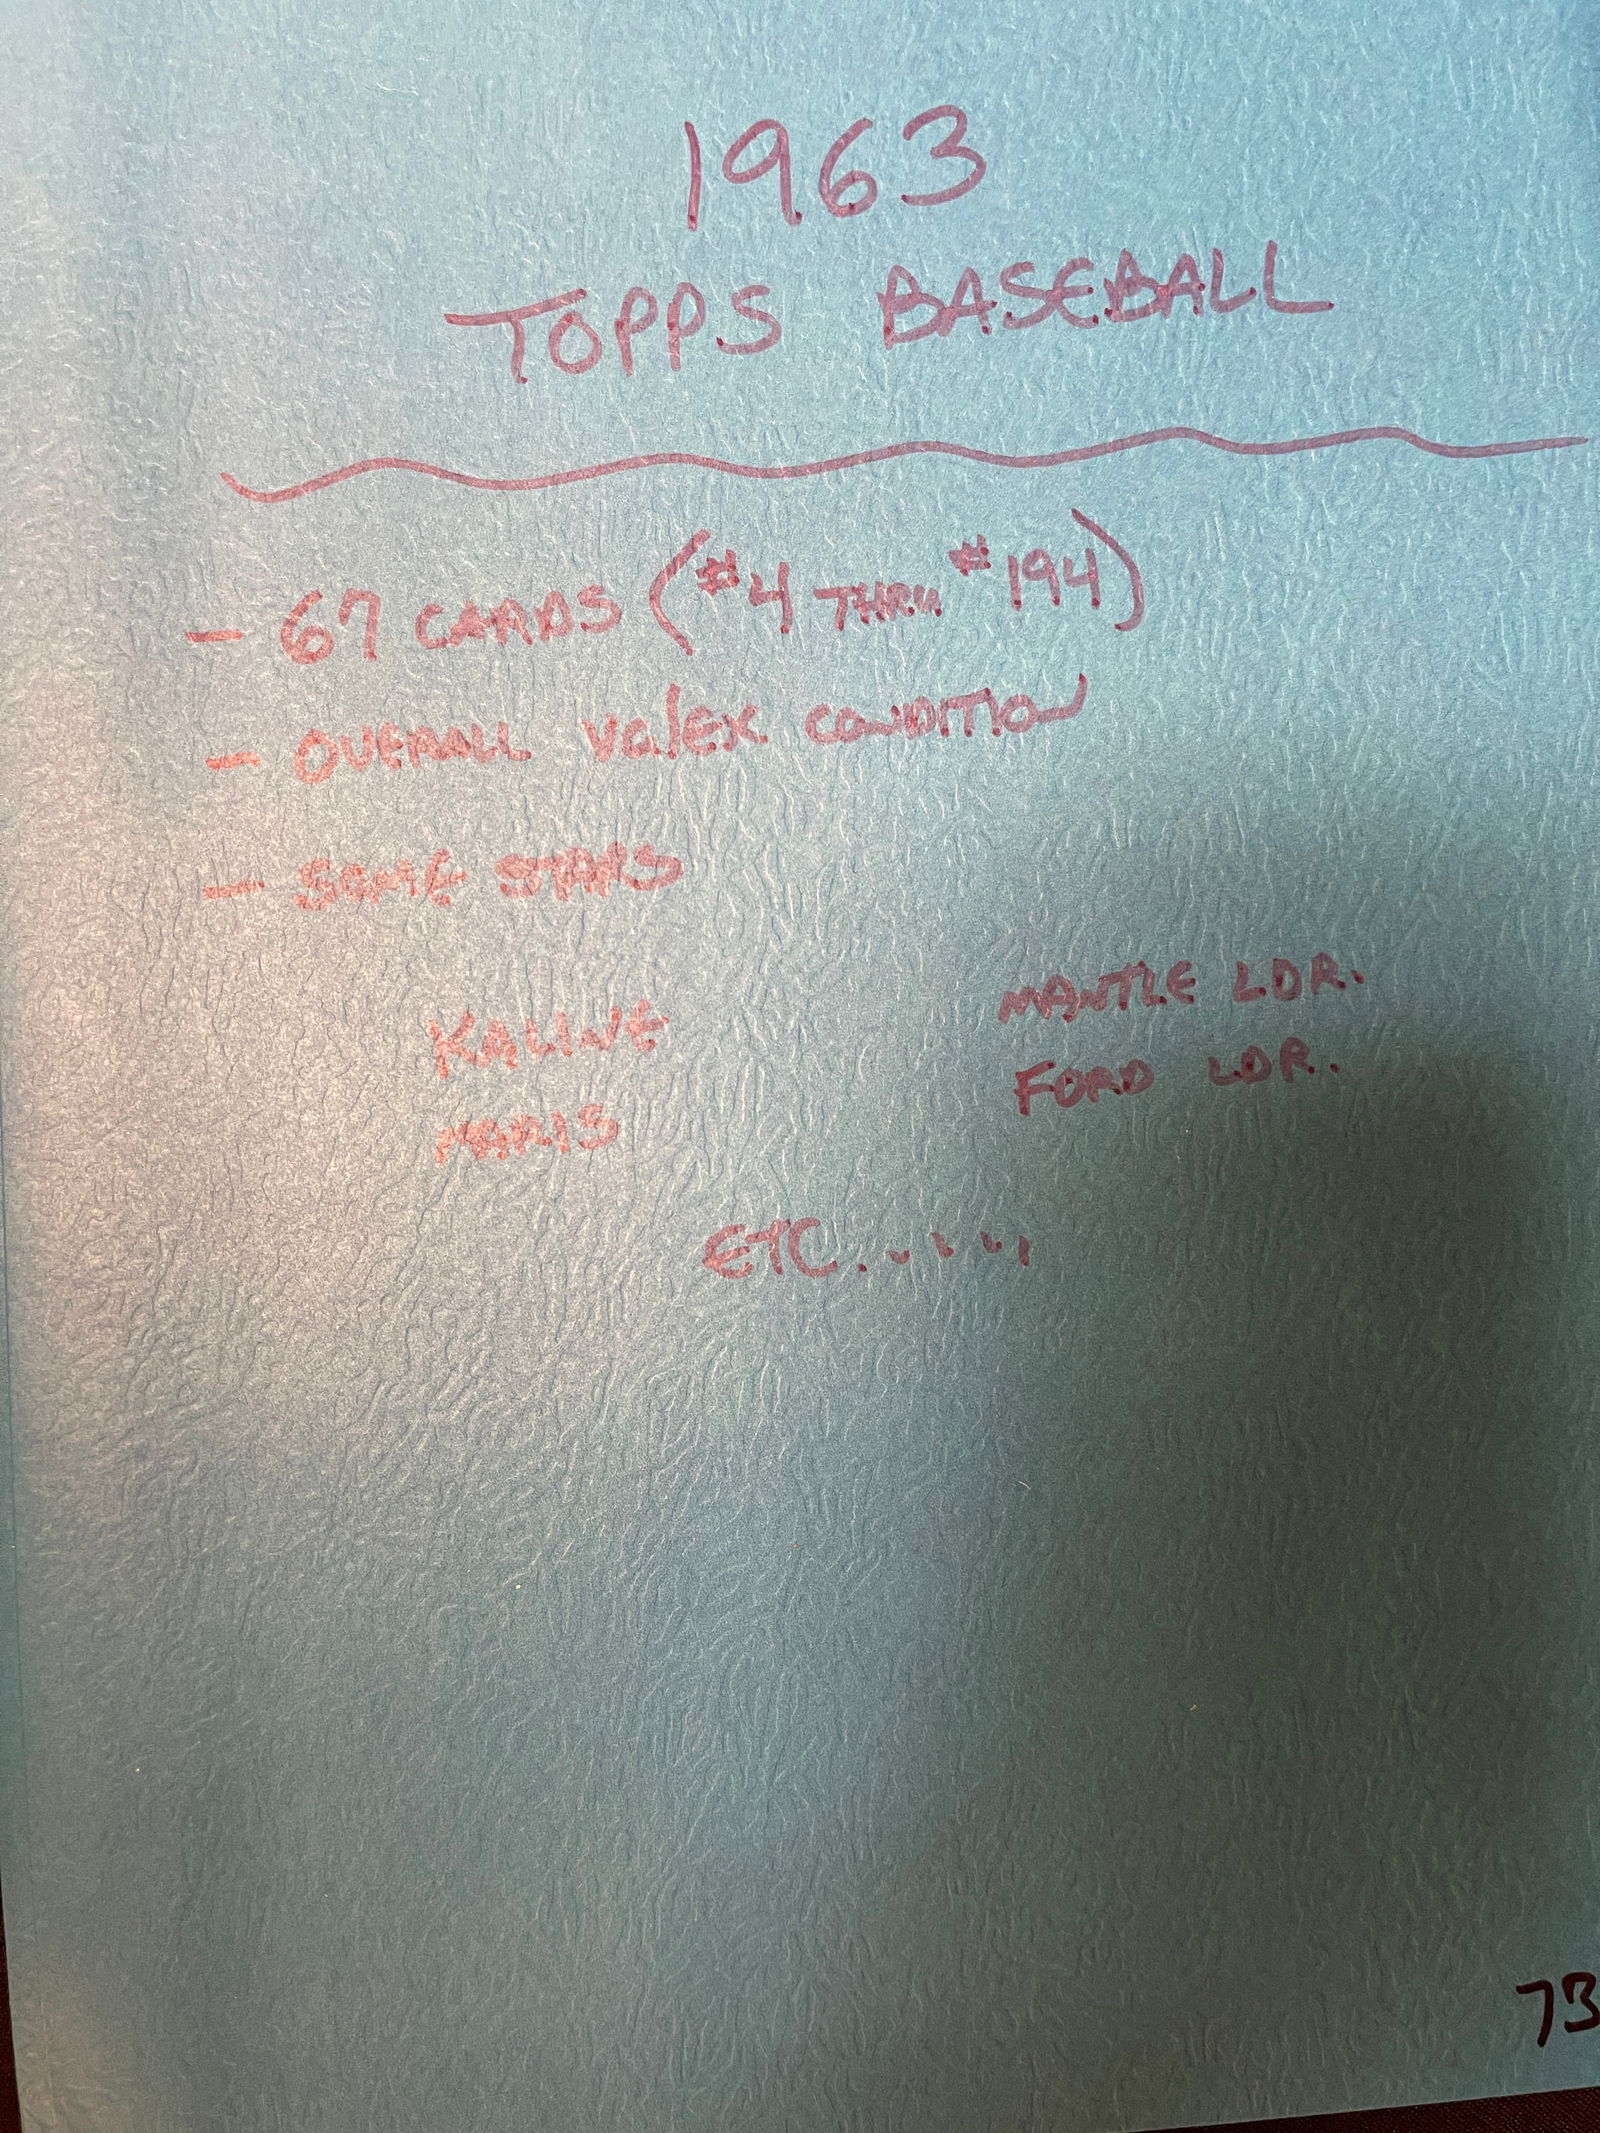 1963
TOPPS BASEBALL
- 67 CARDS (#4 THRU #194)
- OVERALL VG/EX CONDITION
- SOME STARS
KALINE
MARIS
MANTLE LDR.
FORD LDR.
ETC.....
73